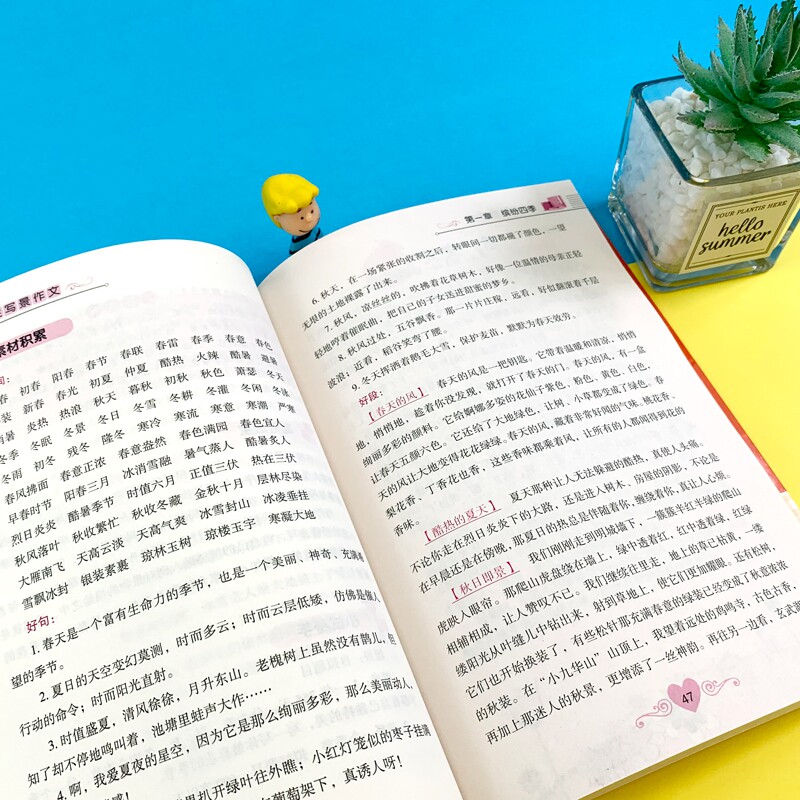 写景作文
素材积累
春 初春 阳春 春节 春联 春雷 春季 春意 春色
装 新春 春光 初夏 仲夏 酷热 火辣 酷暑 避暑
消暑 炎热 热浪 秋天 暮秋 初秋 秋色 萧瑟 冬天
冬季 冬眠 冬景 冬日 冬雪 冬耕 冬灌 冬闲 冬泳
冬雨 初冬 残冬 隆冬 寒冷 寒流 寒意 寒潮 严寒
春风拂面 春意正浓 春意盎然 春色满园 春色宜人
早春时节 阳春三月 冰消雪融 暑气蒸人 酷暑炙人
烈日炎炎 酷暑季节 时值六月 正值三伏 热在三伏
秋风落叶 秋收繁忙 秋收冬藏 金秋十月 层林尽染
大雁南飞 天高云淡 天高气爽 冰雪封山 冰凌垂挂
雪飘冰封 银装素裹 琼林玉树 琼楼玉宇 寒凝大地
好句:
1. 春天是一个富有生命力的季节,也是一个美丽、神奇、充满希
望的季节。
2. 夏日的天空变幻莫测,时而多云;时而云层低矮,仿佛是催人
行动的命令;时而阳光直射。
3. 时值盛夏,清风徐徐,月升东山。老槐树上虽然没有鹊儿,但
知了却不停地鸣叫着,池塘里蛙声大作……
4. 啊,我爱夏夜的星空,因为它是那么绚丽多彩,那么美丽动人,
感!
里扒开绿叶往外瞧;小红灯笼似的枣子挂满
葡萄架下,真诱人呀!
第一章 缤纷四季
6. 秋天,在一场紧张的收割之后,转眼间一切都褪了颜色,一望
无垠的土地裸露了出来。
7. 秋风,凉丝丝的,吹拂着花草树木,好像一位温情的母亲正轻
轻地哼着催眠曲,把自己的子女送进甜蜜的梦乡。
8. 秋风过处,五谷飘香。那一片片庄稼,远看,好似翻滚着千层
波浪;近看,稻谷笑弯了腰。
9. 冬天挥洒着鹅毛大雪,保护麦苗,默默为春天效劳。
好段:
【春天的风】 春天的风是一把钥匙。它带着温暖和清凉,悄悄
地,悄悄地,趁着你没发现,就打开了春天的门。春天的风,有一盒
绚丽多彩的颜料。它给婀娜多姿的花仙子紫色,粉色,黄色,白色,
让春天五颜六色。它还给了大地绿色,让树、小草都变成了绿色。春
天的风让大地变得花花绿绿。春天的风,藏着非常好闻的气味。桃花香,
梨花香,丁香花也香,这些香味都乘着风,让所有的人都闻得到花的
香味。
【酷热的夏天】 夏天那种让人无法躲避的酷热,真使人头痛。
不论你走在烈日炎炎下的大路,还是进入树木、房屋的阴影,不论是
在早晨还是在傍晚,那夏日的热总是伴随着你,缠绕着你,直让人心烦。
【秋日即景】 我们刚刚走到明城墙下,一簇簇半红半绿的爬山
虎映入眼帘。那爬山虎盘绕在墙上,绿中透着红,红中透着绿,红绿
相辅相成,让人赞叹不已。我们继续往里走,地上的草已枯黄,一缕
缕阳光从叶缝儿中钻出来,射到草地上,使它们更加耀眼。还有松树,
它们也开始换装了,有些松针那充满春意的绿装已经变成了秋意浓浓
的秋装。在“小九华山”山顶上,我望着远处的鸡鸣寺,古色古香,
再加上那迷人的秋景,更增添了一丝神韵。再往另一边看,玄武湖
47
YOUR PLANT IS HERE
hello
summer